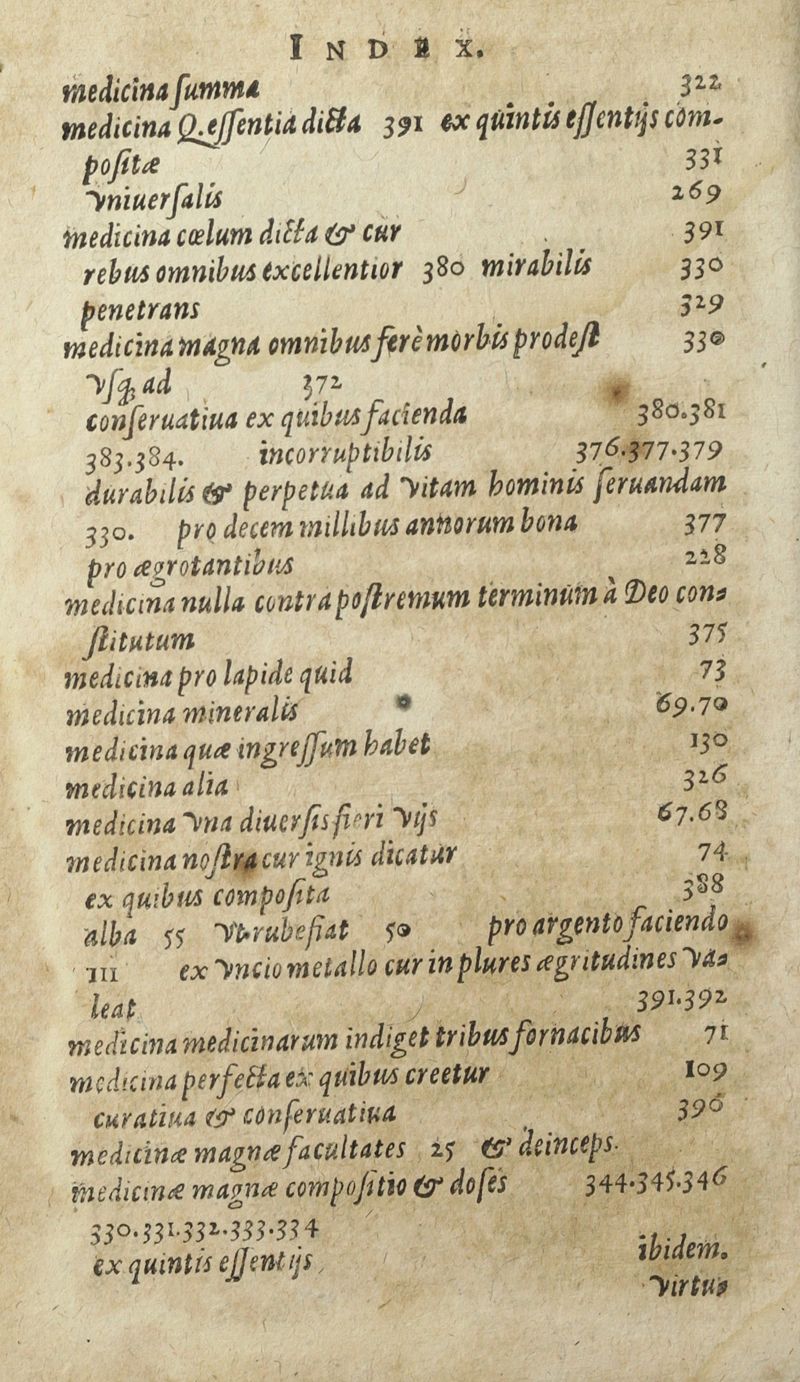 INDEX.
medicina ſumma 322
medicina Q. eſſentia dicta 391 ex quintis eſſentijs com-
poſitæ 331
vniuerſalis 269
medicina cœlum dicta & cur 391
rebus omnibus excellentior 380 mirabilis 330
penetrans 329
medicina magna omnibus ferè morbis prodeſt 330
vſq; ad 372
conſeruatiua ex quibus facienda 380.381
383.384. incorruptibilis 376.377.379
durabilis & perpetua ad vitam hominis ſeruandam
330. pro decem millibus annorum bona 377
pro ægrotantibus 228
medicina nulla contra poſtremum terminum à Deo con=
ſtitutum 375
medicina pro lapide quid 73
medicina mineralis 69.70
medicina quæ ingreſſum habet 130
medicina alia 326
medicina vna diuerſis fieri vijs 67.68
medicina noſtra cur ignis dicatur 74
ex quibus compoſita 388
alba 55 Vt rubefiat 50 pro argento faciendo
111 ex vncio metallo cur in plures ægritudines va=
leat 391.392
medicina medicinarum indiget tribus fornacibus 71
medicina perfecta ex quibus creetur 109
curatiua & conſeruatiua 390
medicinæ magnæ facultates 25 & deinceps.
medicinæ magnæ compoſitio & doſes 344.345.346
330.331.332.333.334
ex quintis eſſentijs ibidem.
virtus